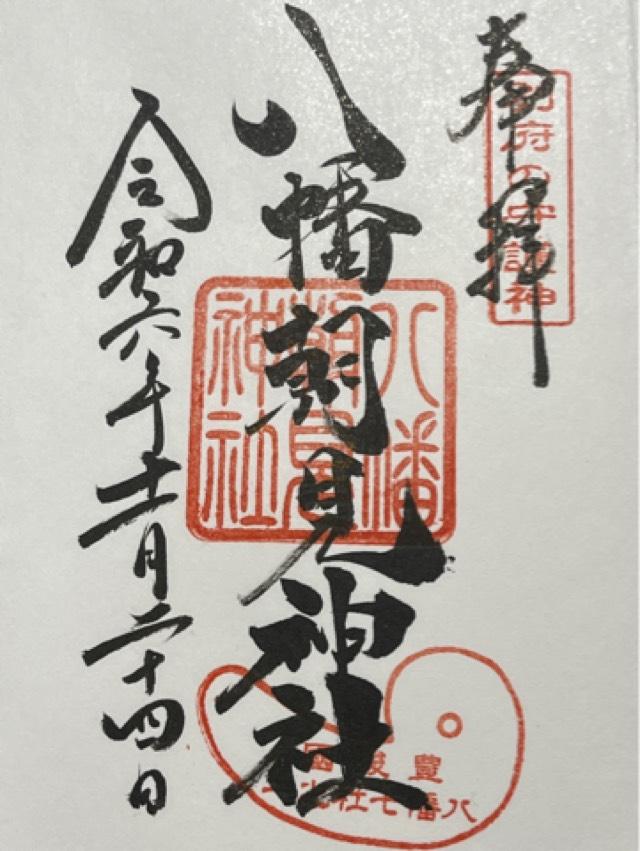 奉拝
別府の守護神
八幡朝見神社
八幡
朝見
神社
豊後國
八幡七社
令和六年十一月二十四日